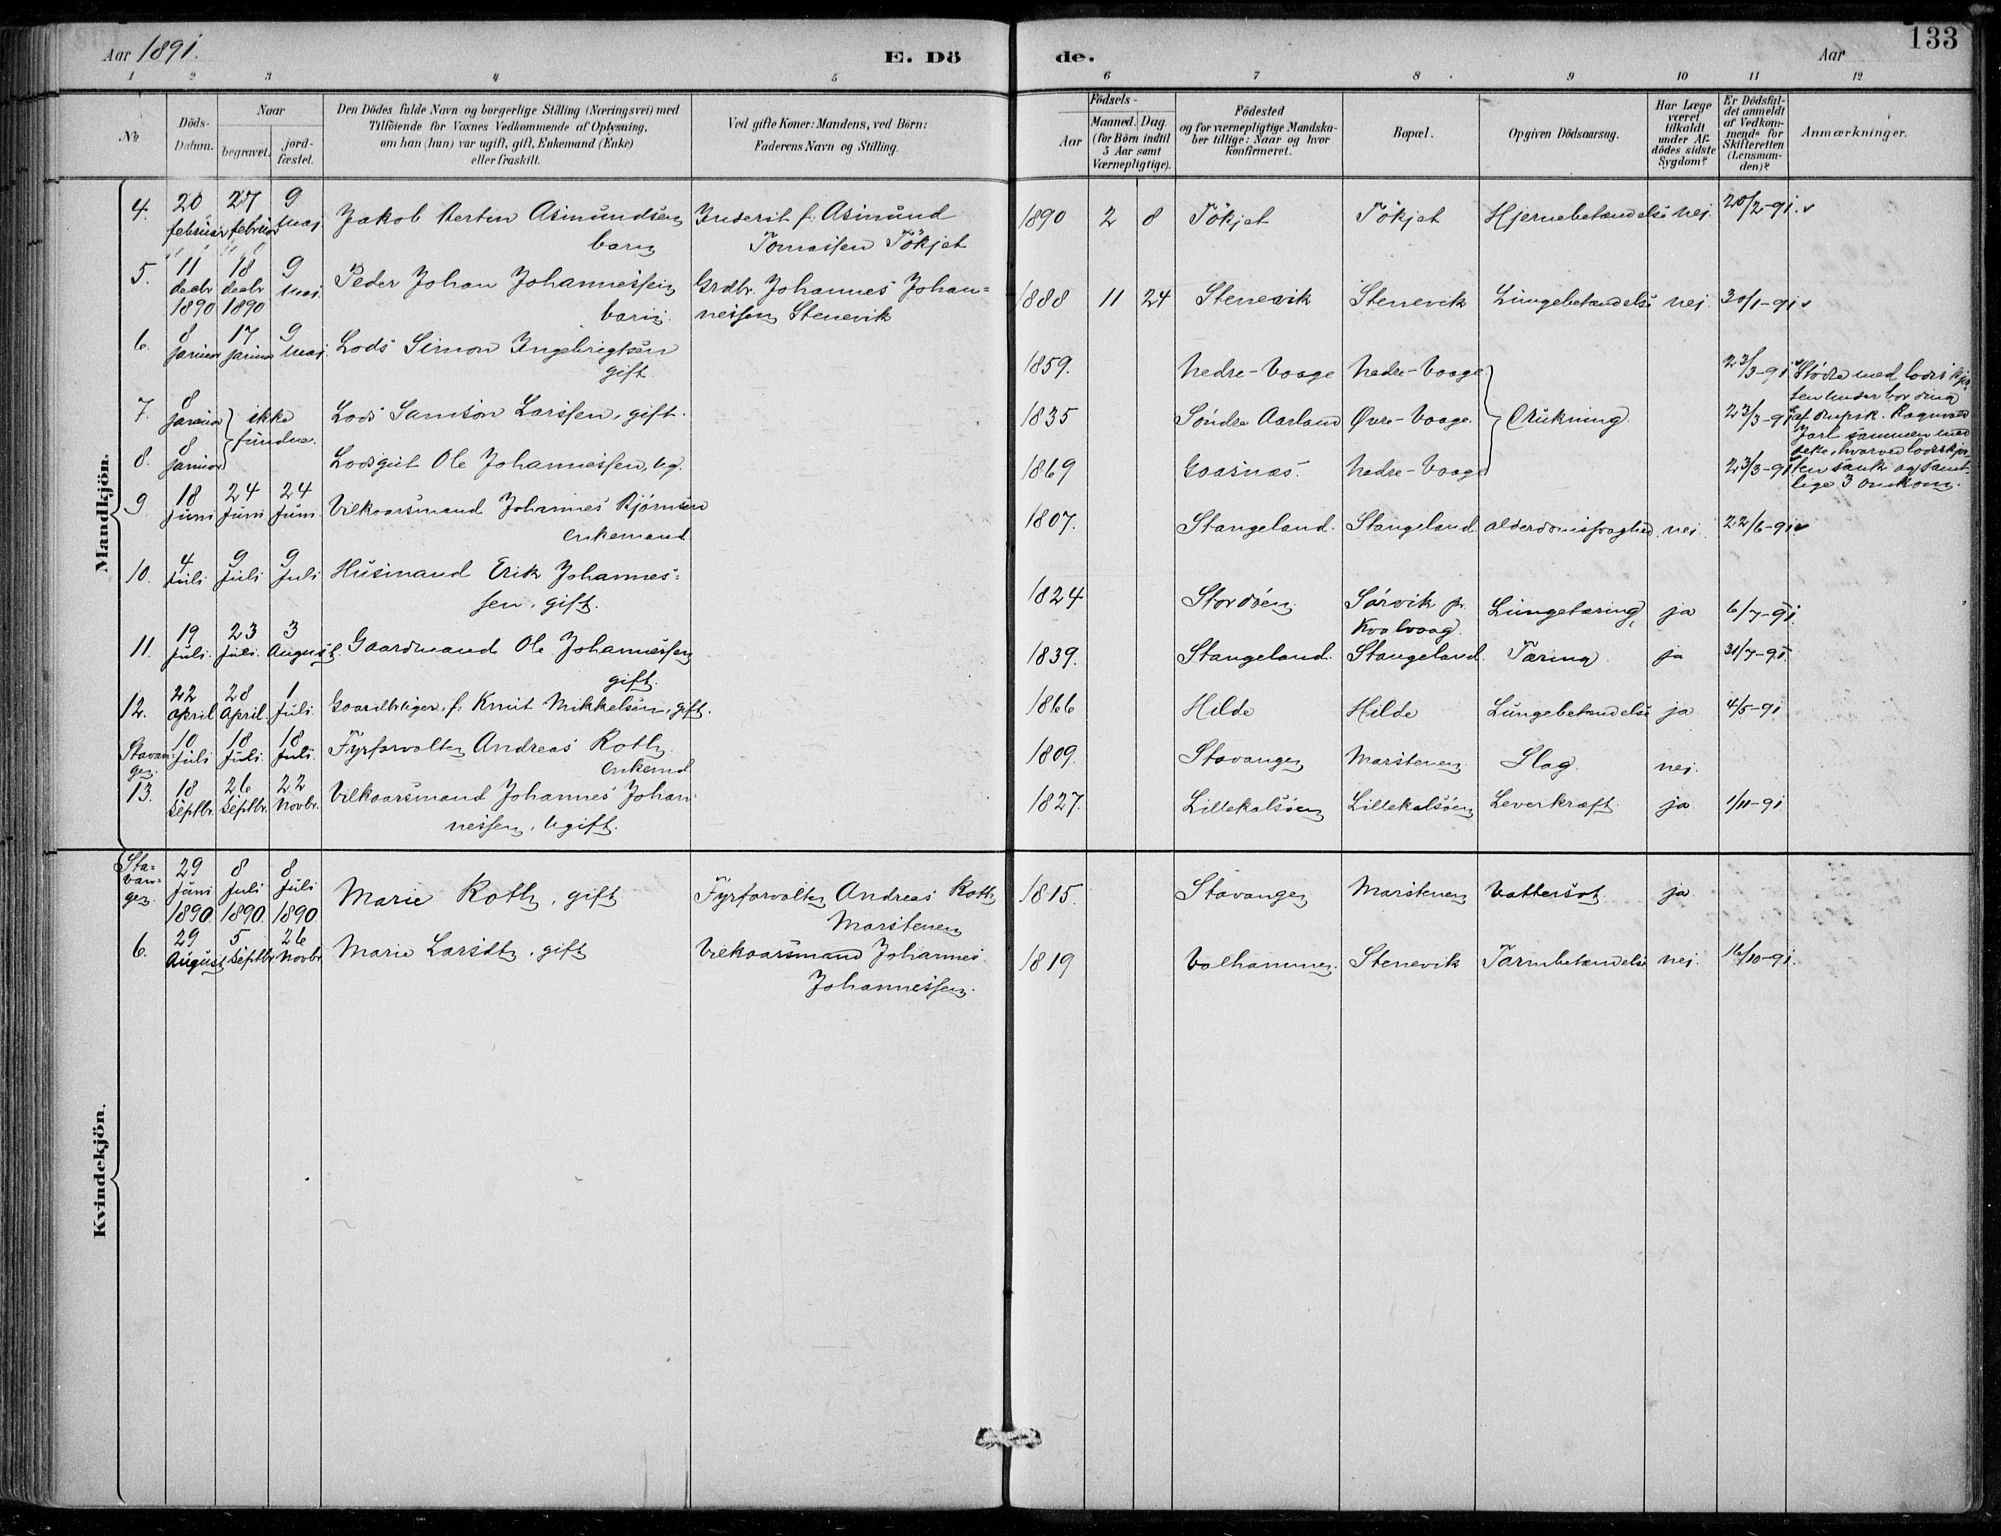 Aar 1891.
E. Dö
de.
Aar
133
1 2 3 4 5 6 7 8 9 10 11 12
No
Döds-Datum.
Naar
begravet.
jord-fæstet.
Den Dödes fulde Navn og borgerlige Stilling (Næringsvei) med
Tilföiende for Voxnes Vedkommende af Oplysning,
om han (hun) var ugift, gift, Enkemand (Enke)
eller fraskilt.
Ved gifte Koner: Mandens, ved Börn:
Faderens Navn og Stilling.
Födsels-
Aar
Maaned. Dag
(for Börn indtil
5 Aar samt
Værnepligtige).
Födested
og for værnepligtige Mandska-
ber tillige: Naar og hvor
Konfirmeret.
Bopæl.
Opgiven Dödsaarsag.
Har Læge
været
tilkaldt
under Af-
dödes sidste
Sygdom?
Er Dödsfal-
det anmeldt
af Vedkom-
mende for
Skifteretten
(Lensman-
den)?
Anmærkninger.
Mandkjön.
4. 20 februar 27 februar 9 Maj Jakob Bertin Asmundsen Inderst f. Asmund 1890 2 8 Tökjet Tökjet Hjernebetændelse nej. 20/2-91.
barn Tomassen Tökjet
5. 11 decbr 1890 18 decbr 1890 9 Maj. Peder Johan Johannessen Grdbr. Johannes Johan- 1888 11 24 Stenevik Stenevik Lungebetændelse nej. 30/1-91
barn. nessen Stenevik
6. 8 januar 17 januar 9 Maj. Lods Simon Ingebrigtsen 1859. Nedre-Vaage Nedre-Vaage 23/3-91
gift.
7. 8 januar ikke fundne. Lods Samson Larssen, gift. 1835 Söndre Aarland Øvre-Vaage. Drukning. 23/3-91
8. 8 januar Lodsgut Ole Johannessen, ug. 1869 Gaasnæs. Nedre-Vaage 23/3-91
Stødte med
ten under
af Dmpsk. Ragnvald
Jarl sammen med
dette, hvorved lodsskjø-
ten sank og samt-
lige 3 omkom.
9. 18 Juni 24 Juni 24 Juni. Vilkaarsmand Johannes Bjørnsen 1807. Stangeland. Stangeland. Alderdomssvaghed. nej. 22/6-91
enkemand
10. 4 Juli 9 Juli 9 Juli Husmand Erik Johannes- 1824 Stordöen. Sörvik pr. Kvalvaag. Lungetæring, ja 6/7-91.
sen, gift.
11. 19 Juli. 23 Juli. 3 August. Gaardmand Ole Johannessen 1839. Stangeland. Stangeland. Tæring. ja 31/7-91.
gift.
12. 22 April 28 April. 1 Juli. f. Knut Mikkelsen, gift. 1866 Hilde Hilde Lungebetændelse ja 4/5-91
Stavanger. 10 Juli 18 Juli. 18 Juli. Fyrforvalter Andreas Roth 1809. Stavanger Marstenen Slag. nej.
enkemd
13. 18 Septbr. 26 Septbr. 22 Novbr. Vilkaarsmand Johannes Johan- 1827. Lillekalsöen Lillekalsöen Leverkræft. ja 1/11-91
nessen, ugift.
Kvindekjön.
Sta-van-ger. 29 Juni 1890. 8 Juli 1890. 8 Juli 1890 Marie Roth, gift Fyrforvalter Andreas Roth 1815. Stavanger Marstenen Vattersot. ja
Marstenen
6. 29 August 5 Septbr. 26 Novbr. Marie Larsdtr. gift Vilkaarsmand Johannes 1819 Valhammer. Stenevik Tarmbetændelse nej. 16/10-91.
Johannessen.